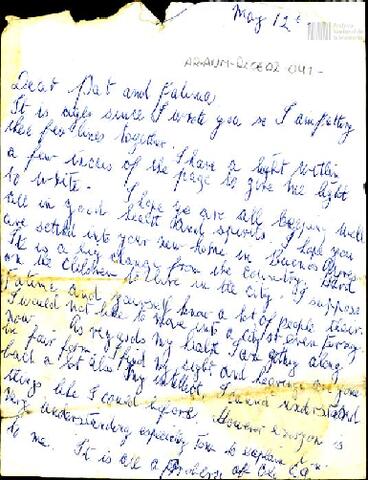 May 12th
Dear Pat and Fatima
It is ages since I wrote you so I am putting
these few lines together. I have a light within
a few inches of the page to give me light
to write. I hope ye are all keeping well
all in good health and spirits. I hope you
are settled into your new home in Buenos Aires
It is a big change from the Country. Hard
on the Children to live in the city. I suppose
Fatima and yourself know a lot of people there.
I would not like to move into a city or even
now. As regards my health I am going along
in fair form. I find my sight and hearing are gone
back a lot also my intellect, I cannot understand
things like I could before. However everyone is
very understanding especially Tom to explain
to me. It is all a problem of Old age